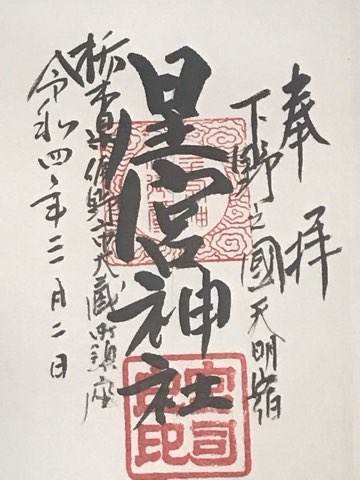 奉拝
下野之國天明宿
星宮神社
栃木県佐野市大蔵町鎮座
令和四年三月二日
宮司
之印